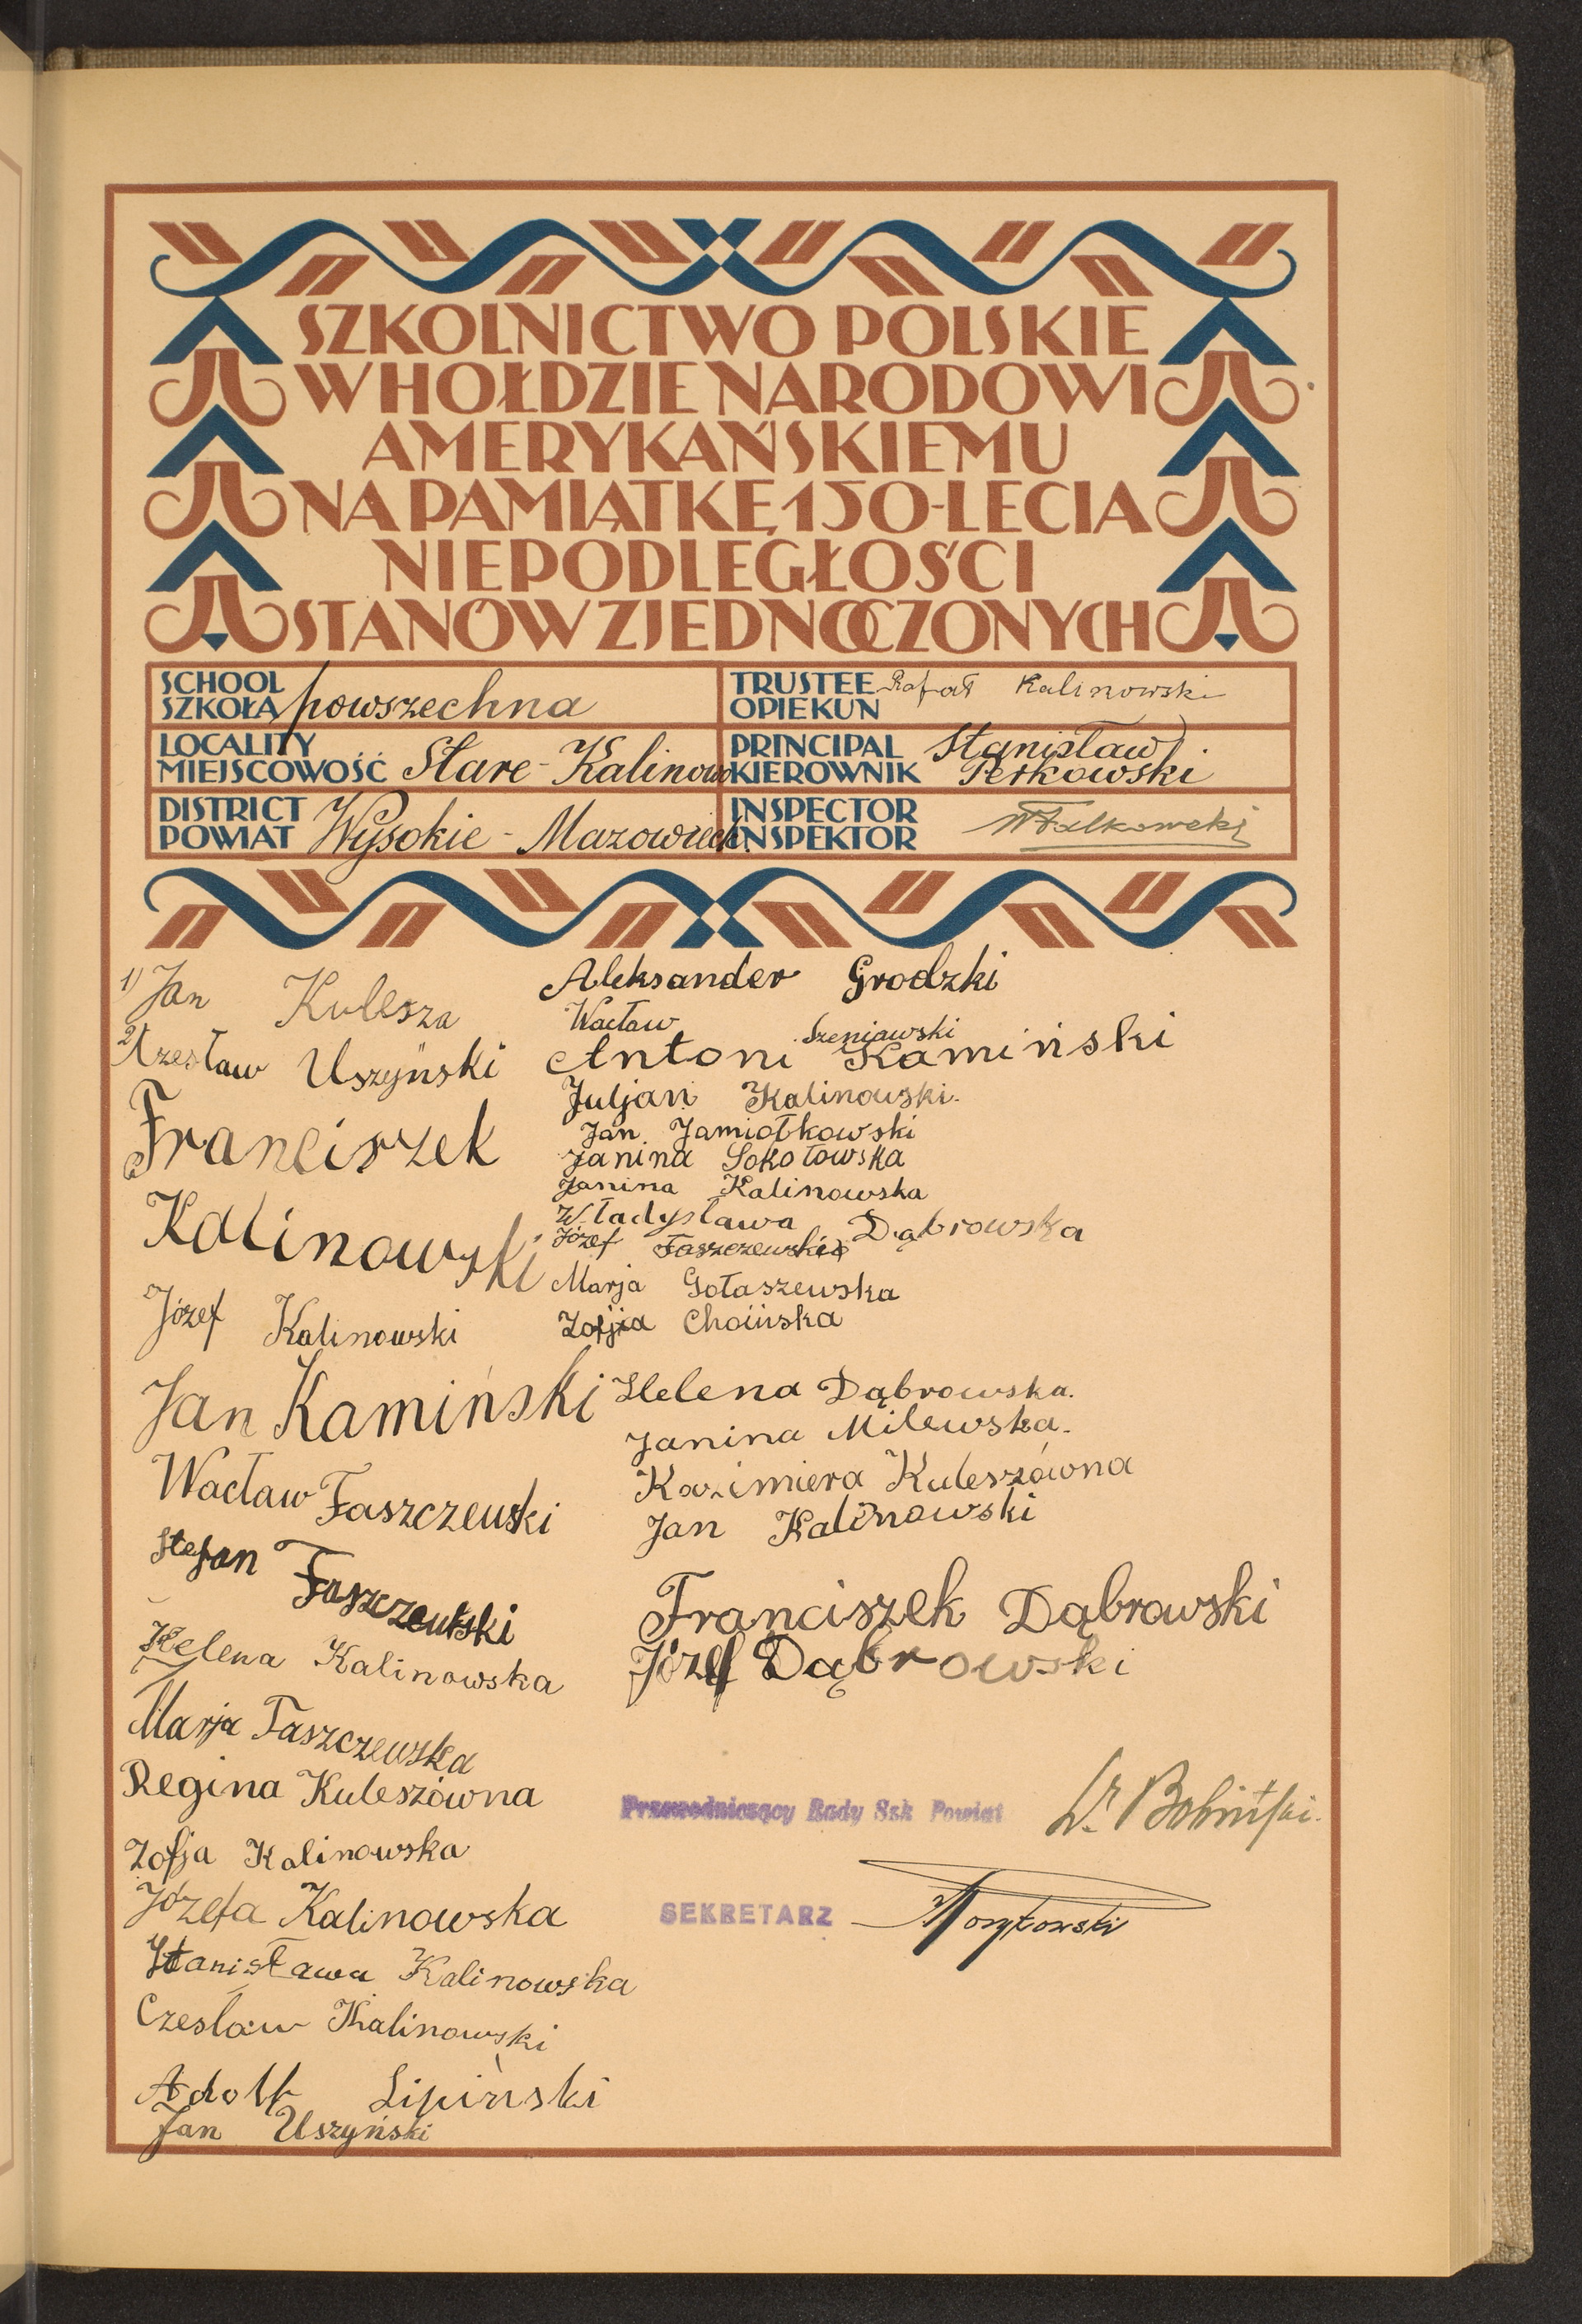 SZKOLNICTWO POLSKIE
W HOŁDZIE NARODOWI
AMERYKAŃSKIEMU
NA PAMIĄTKĘ 150-LECIA
NIEPODLEGŁOŚCI
STANÓW ZJEDNOCZONYCH
SCHOOL
SZKOŁA powszechna
TRUSTEE
OPIEKUN Rafał Kalinowski
LOCALITY
MIEJSCOWOŚĆ Stare-Kalinowo
PRINCIPAL
KIEROWNIK Stanisław
Perkowski
DISTRICT
POWIAT Wysokie-Mazowieck.
INSPECTOR
INSPEKTOR WFalkowski
1) Jan Kulesza
2) Czesław Uszyński
Franciszek
Kalinowski
Józef Kalinowski
Jan Kamiński
Wacław Faszczewski
Stefan Faszczewski
Helena Kalinowska
Marja Faszczewska
Regina Kuleszówna
Zofja Kalinowska
Józefa Kalinowska
Stanisława Kalinowska
Czesław Kalinowski
Adolf Lipiński
Jan Uszyński
Aleksander Grodzki
Wacław Szeniawski
Antoni Kamiński
Juljan Kalinowski.
Jan Jamiołkowski
Janina Sokołowska
Janina Kalinowska
Władysława Dąbrowska
Józef Faszczewski
Marja Gołaszewska
Zofjia Choińska
Helena Dąbrowska.
Janina Milewska.
Kazimiera Kuleszówna
Jan Kalinowski
Franciszek Dąbrowski
Józef Dąbrowski
Przewodniczący Rady Szk Powiat
SEKRETARZ